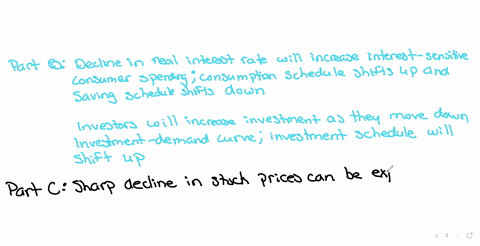 Part B: Decline in real interest rate will increase interest-sensitive
consumer spending; consumption schedule shifts up and
Saving schedule shifts down
Investors will increase investment as they move down
Investment-demand curve; investment schedule will
shift up
Part C: Sharp decline in stock prices can be